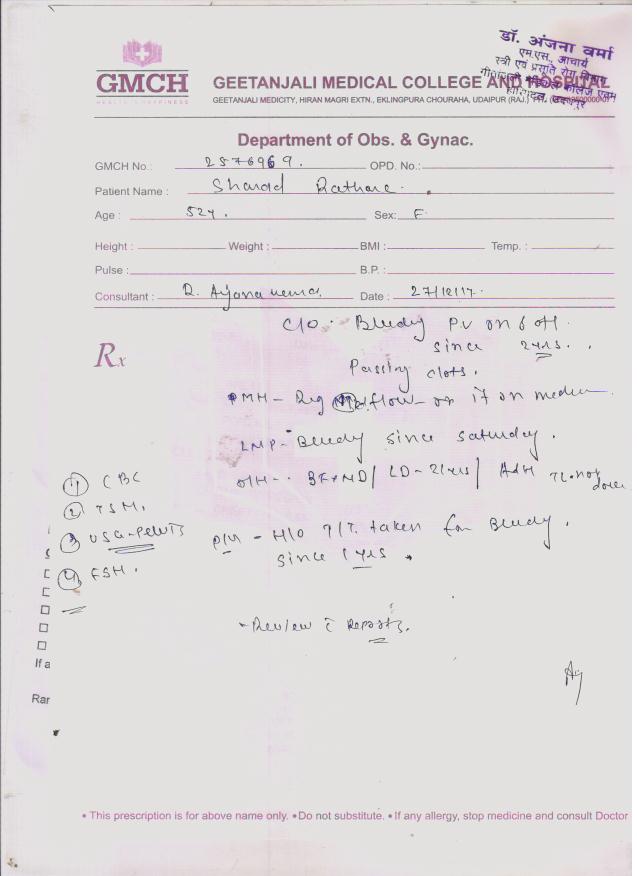 डॉ. अंजना वर्मा
एम.एस., आचार्य
स्त्री एवं प्रसूति रोग विभाग
GMCH
HEALTH & HAPPINESS
GEETANJALI MEDICAL COLLEGE AND HOSPITAL
GEETANJALI MEDICITY, HIRAN MAGRI EXTN., EKLINGPURA CHOURAHA, UDAIPUR (RAJ.)
Department of Obs. & Gynac.
GMCH No.: 2576969. OPD. No.:
Patient Name : Sharad Rathore.
Age : 52y. Sex: F
Height : Weight : BMI : Temp. :
Pulse : B.P. :
Consultant : Date : 27/12/17.
Rx
C/o. Bleedy P.V on & off.
since 2yrs.
Passing clots.
LMP - Bleedy since Saturday.
① CBC
② TSH.
③ USG-Pelvis
④ FSH.
P/M - H/O T/T. taken for Bleedy.
since 1 yrs.
- Review c̄ Reports.
If a
Rar
• This prescription is for above name only. • Do not substitute. • If any allergy, stop medicine and consult Doctor